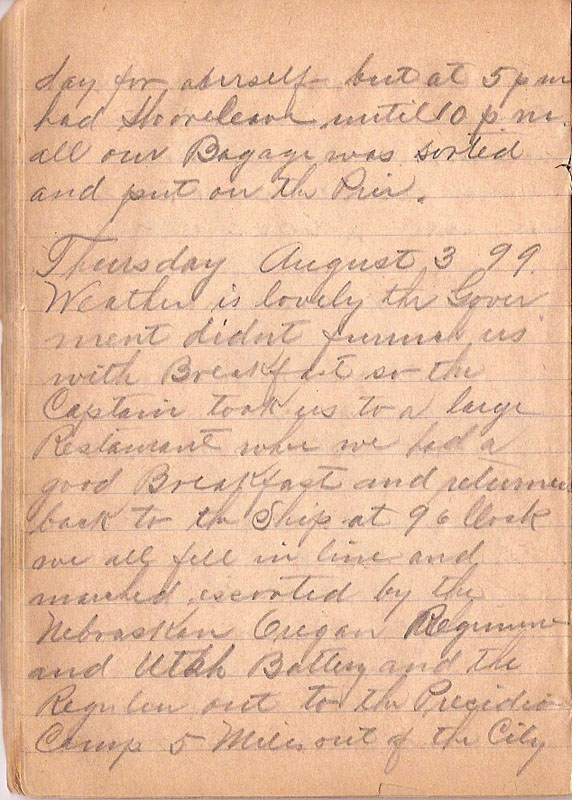 day for aberself but at 5 p m
had Shoreleave until 10 p m.
all our Bagage was sorted
and put on the Pier.
Thursday August 3 99
Weather is lovely the Gover
ment didnt furnish us
with Breakfast so the
Captain took us to a large
Restaurant ware we had a
good Breakfast and returned
back to the Ship at 9 o Clock
we all fell in line and
marched escorted by the
Nebraskan Oregan Regiment
and Utah Battery and the
out to the Presidio
Camp 5 Miles out of the City